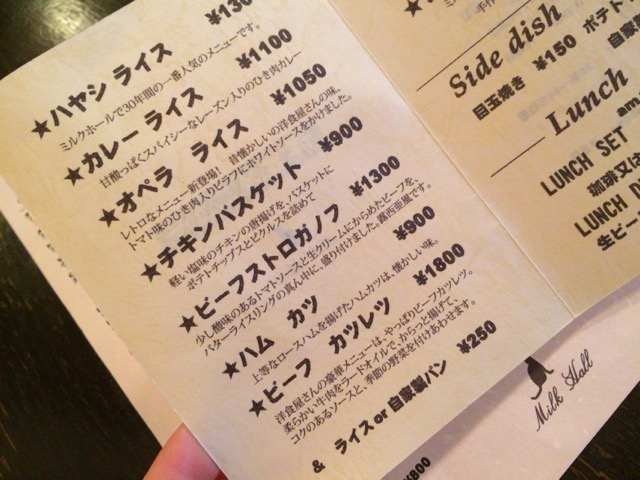 ★ハヤシ ライス
ミルクホールで30年間の一番人気のメニューです。
★カレー ライス ¥1100
甘酸っぱくスパイシーなレーズン入りのひき肉カレー
★オペラ ライス ¥1050
レトロなメニュー新登場！ 昔懐かしいの洋食屋さんの味、
トマト味のひき肉入りピラフにホワイトソースをかけました。
★チキンバスケット ¥900
軽い塩味のチキンの唐揚げを、バスケットに
ポテトチップスとピクルスを詰めて
★ビーフストロガノフ ¥1300
少し酸味のあるトマトソースと生クリームにからめたビーフを、
バターライスリングの真ん中に、盛り付けました。露西亜風です。
★ハム カツ ¥900
上等なロースハムを揚げたハムカツは、懐かしい味。
★ビーフ カツレツ ¥1800
洋食屋さんの豪華メニューは、やっぱりビーフカツレツ。
柔らかい牛肉をラードオイルで、からっと揚げて、
コクのあるソースと、季節の野菜を付けあわせます。
& ライス or 自家製パン ¥250
Side dish
目玉焼き ¥150 ポテト
自家
Lunch
LUNCH SET
珈琲又は
LUNCH
生ビー
Milk Hall
¥800